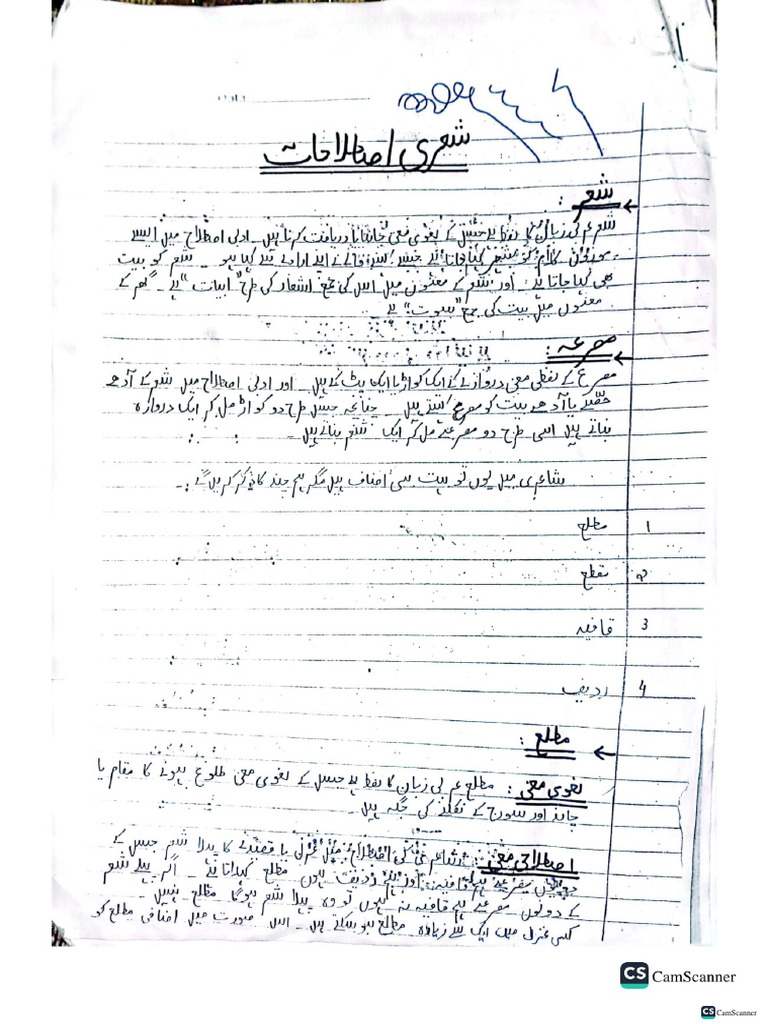 شعری اصطلاحات
شعر :
شعر عربی زبان کا لفظ ہے جس کے لغوی معنی جاننا یا دریافت کرنا ہیں۔ ادبی اصطلاح میں ایسے
موزوں کلام کو شعر کہا جاتا ہے جسے کسی نے اپنے ارادے سے کہا ہو ۔ شعر کو بیت
بھی کہا جاتا ہے ۔ اور شعر کے معنوں میں اس کی جمع اشعار کی طرح "ابیات" ہے ۔ گھر کے
معنوں میں بیت کی جمع "بیوت" ہے
مصرعہ :
مصرع کے لفظی معنی دروازے کے ایک کواڑ یا ایک پٹ کے ہیں ۔ اور ادبی اصطلاح میں شعر کے آدھے
حصّے یا آدھے بیت کو مصرع کہتے ہیں ۔ چنانچہ جس طرح دو کواڑ مل کر ایک دروازہ
بناتے ہیں اسی طرح دو مصرعے مل کر ایک شعر بناتے ہیں ۔
شاعری میں یوں تو بہت سی اصناف ہیں مگر ہم چند کا ذکر کریں گے :۔
1 مطلع
2 مقطع
3 قافیہ
4 ردیف
مطلع :
لغوی معنی : مطلع عربی زبان کا لفظ ہے جس کے لغوی معنی طلوع ہونے کا مقام یا
چاند اور سورج کے نکلنے کی جگہ ہیں ۔
اصطلاحی معنی : شاعری کی اصطلاح میں غزل یا قصیدے کا پہلا شعر جس کے
دونوں مصرعے ہم قافیہ اور ہم ردیف ہوں مطلع کہلاتا ہے ۔ اگر پہلے شعر
کے دونوں مصرعے ہم قافیہ نہ ہوں تو وہ پہلا شعر ہوگا مطلع نہیں ۔
کسی غزل میں ایک سے زیادہ مطلع ہو سکتے ہیں ۔ اس صورت میں اضافی مطلع کو
CS CamScanner
CS CamScanner